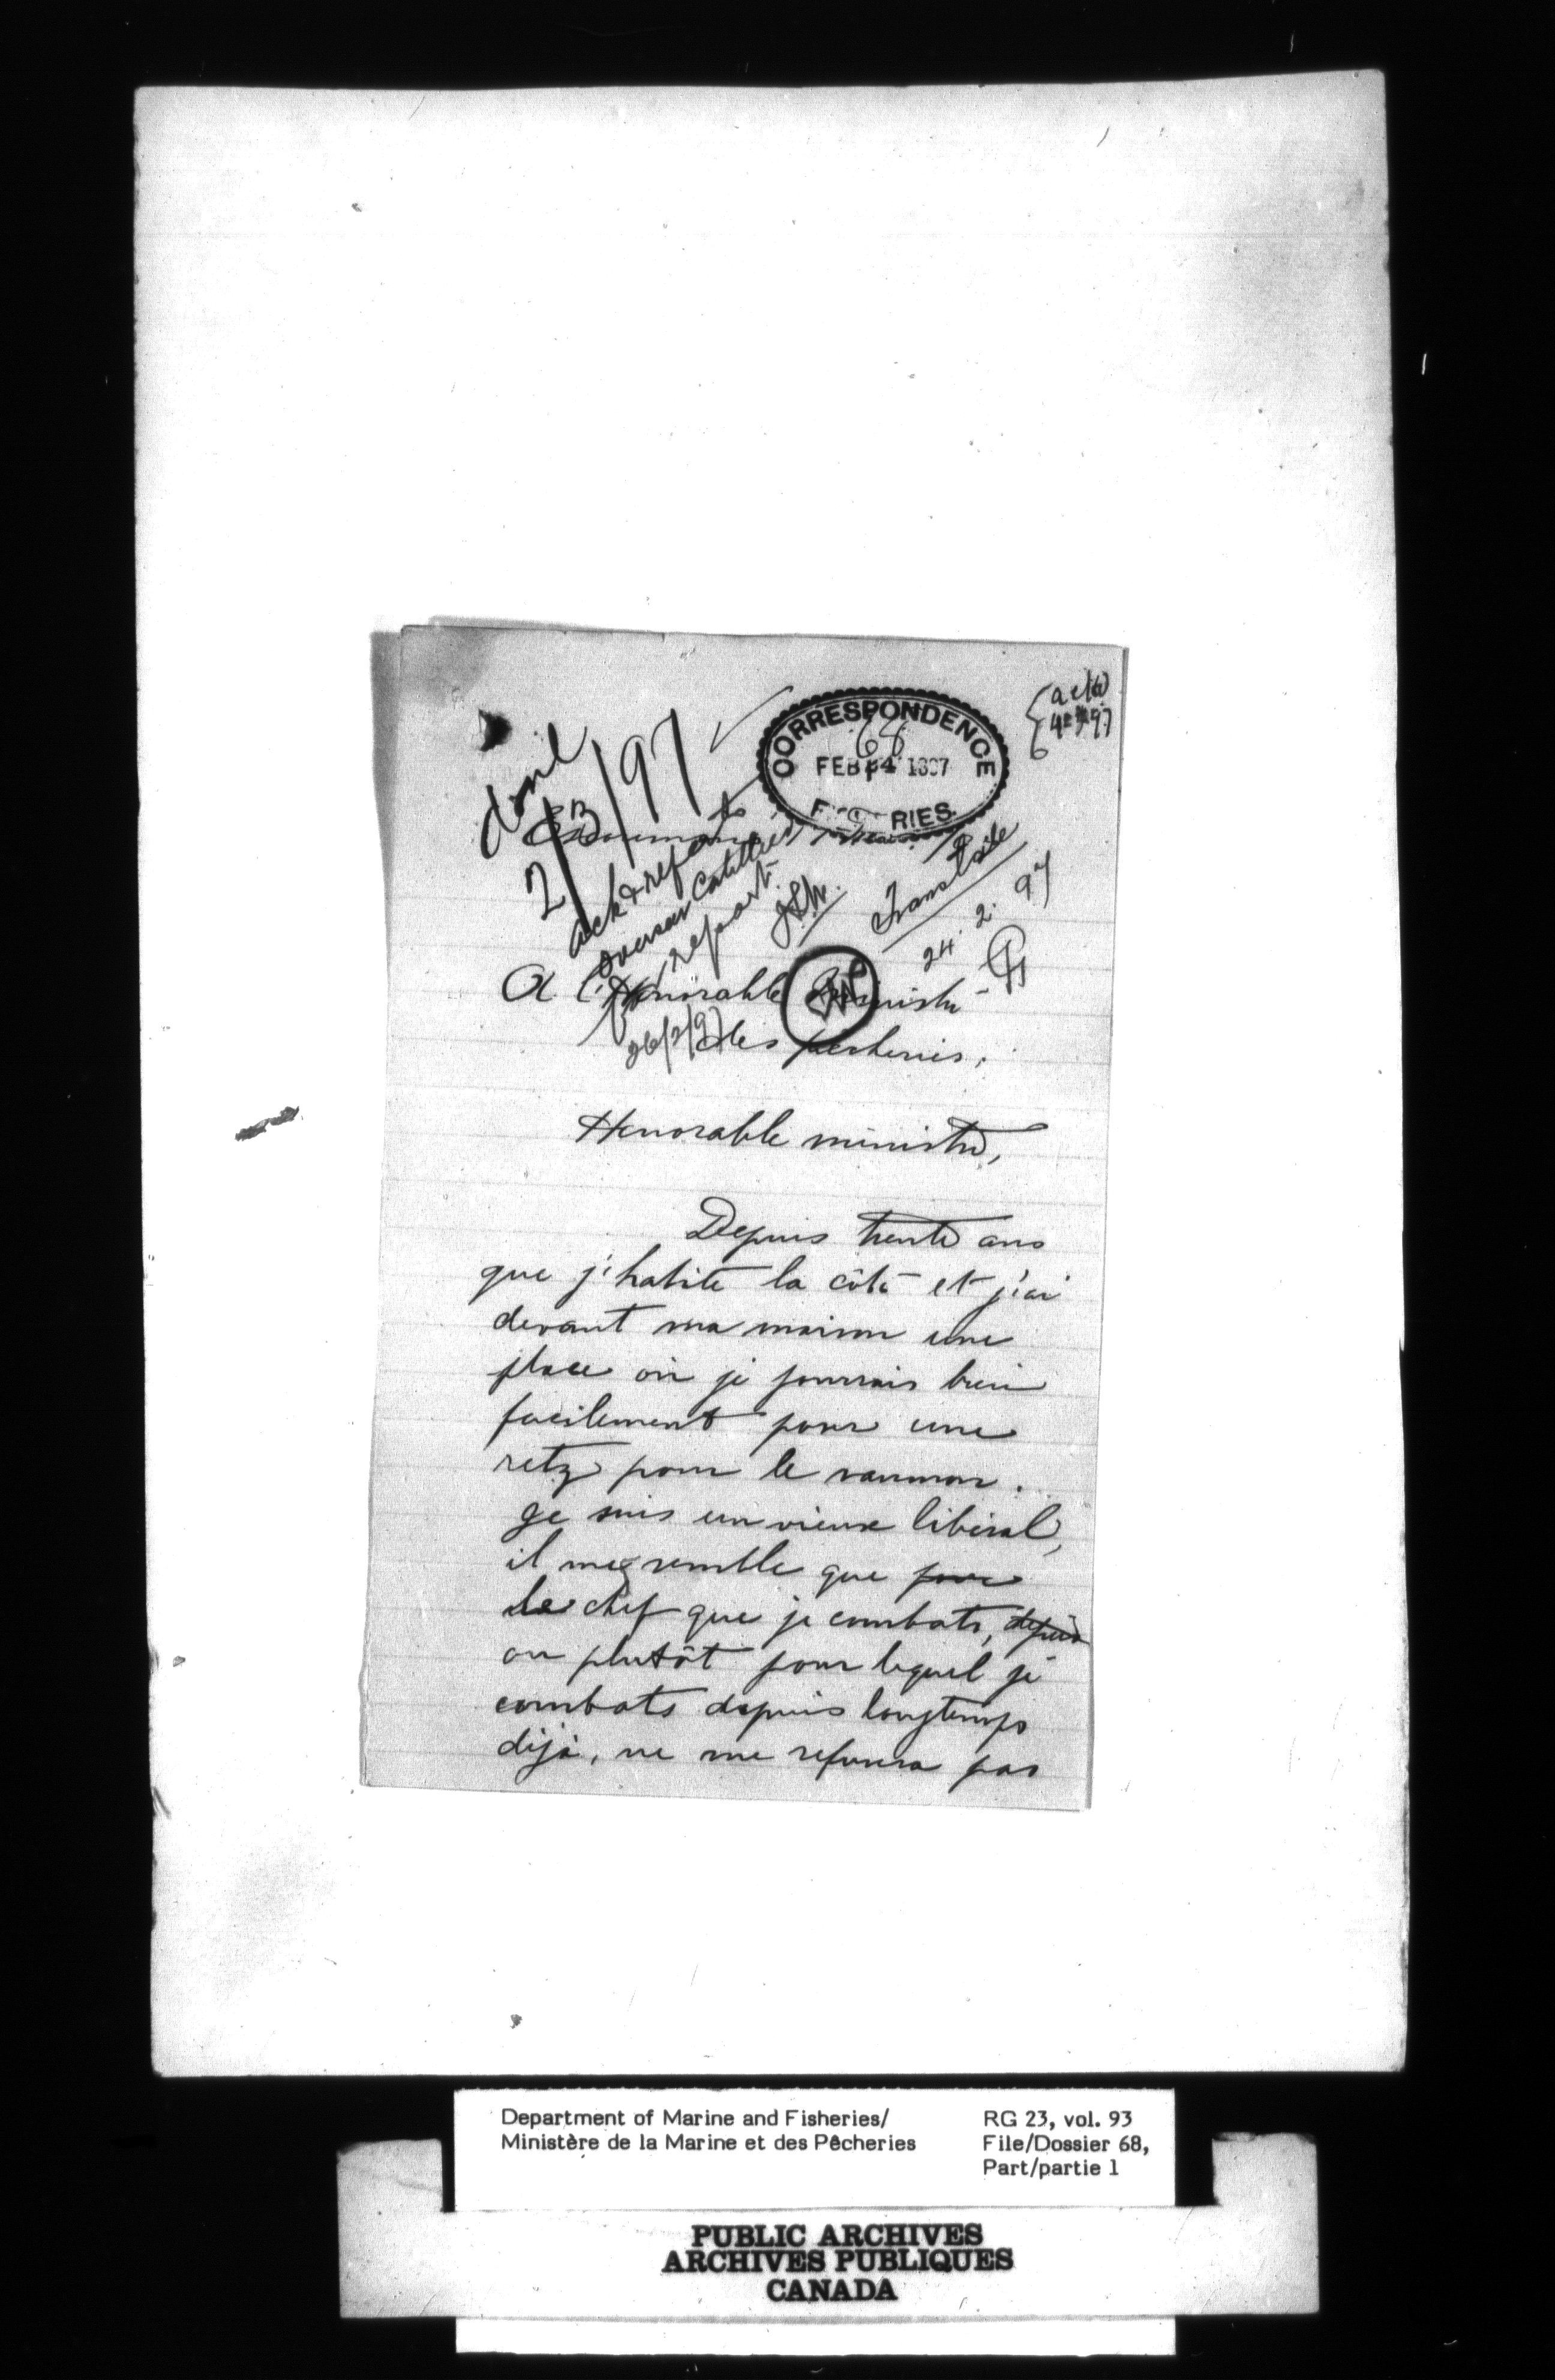 ack
4 97
CORRESPONDENCE
68
FEB 24 1897
F RIES
done
2/3/97
Esc
ack & refer to
overseer
report
Translate
24. 2. 97
A l'Honorable ministre
des pêcheries,
26/2/97
Honorable ministre,
Depuis trente ans
que j'habite la côte et j'ai
devant ma maison une
place où je pourrais bien
facilement poser une
retz pour le saumon.
Je suis un vieux libéral,
il me semble que pour
le chef que je combats, depuis
ou plutôt pour lequel je
combats depuis longtemps
déjà, ne me refusera pas
Department of Marine and Fisheries/
Ministère de la Marine et des Pêcheries
RG 23, vol. 93
File/Dossier 68,
Part/partie 1
PUBLIC ARCHIVES
ARCHIVES PUBLIQUES
CANADA